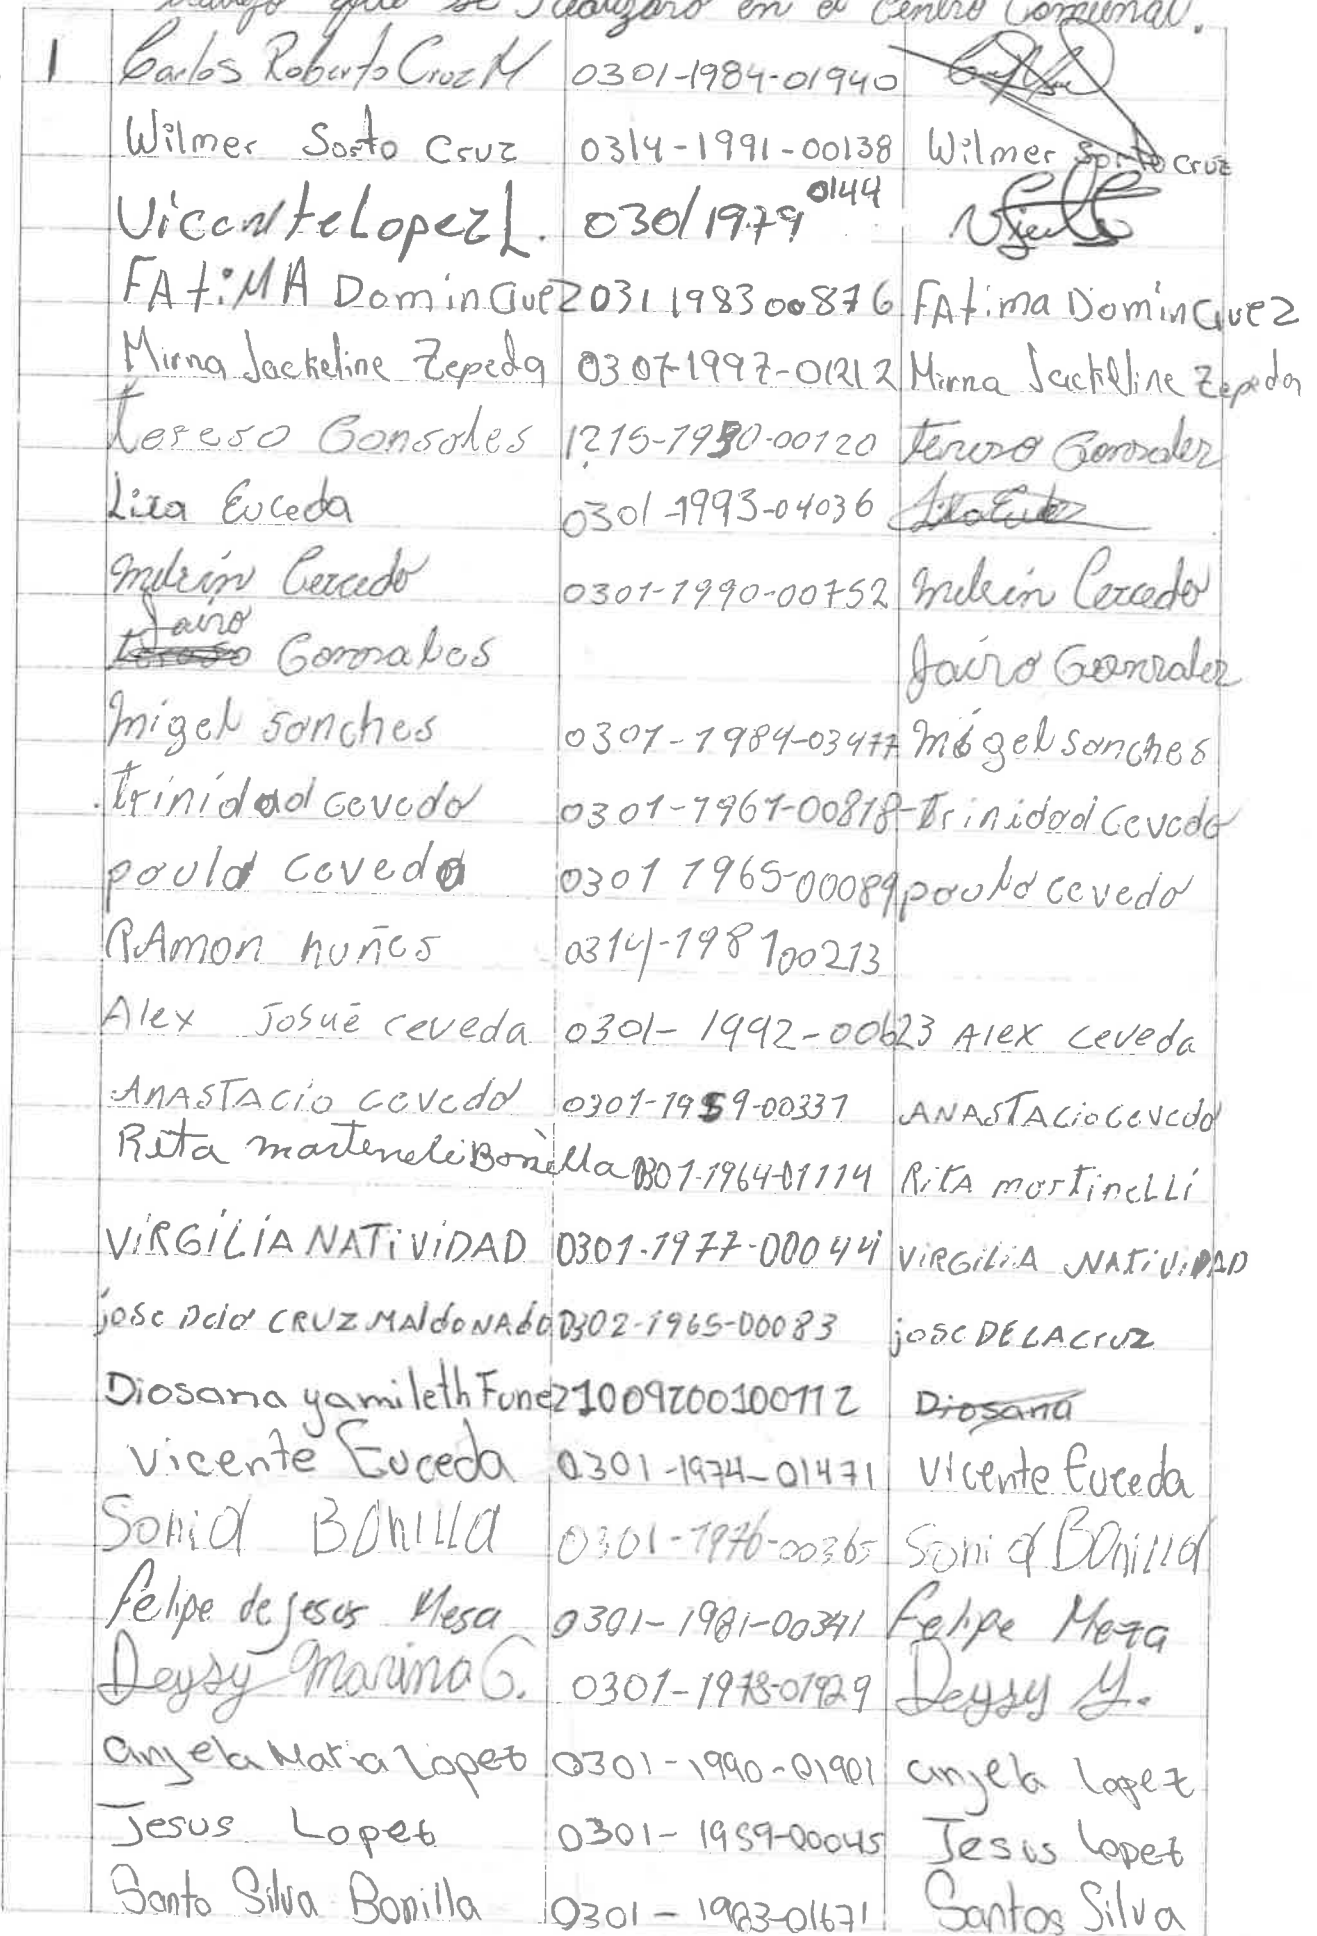 trabajo que se realizara en el Centro Comunal.
1 Carlos Roberto Cruz M 0301-1984-01940
Wilmer Sorto Cruz 0314-1991-00138 Wilmer Sorto Cruz
Vicente Lopez L. 0301 1979 0144
FAtiMA DominGuez 0311983 00876 FAtima DominGuez
Mirna Jackeline Zepeda 0307-1997-01212 Mirna Jackeline Zepeda
tereso Gonsales 1215-1950-00120 Tereso Gonzalez
Liza Euceda 0301-1993-04036
Cercedo 0301-1990-00752 Cercedo
Jairo Gonzales Jairo Gonzalez
migel sanches 0301-1984-03477 migel sanches
trinidad cevedo 0301-1961-00818 trinidad cevedo
paula cevedo 0301 1965-00089 paula cevedo
RAmon nuñes 0314-1981 00213
Alex Josué ceveda 0301-1992-00623 Alex ceveda
ANASTAcio cevedo 0301-1959-00331 ANASTAcio cevedo
Rita marteneli Bonilla 0301-1964-01114 RitA martineLLi
ViRGiLiA NATiViDAD 0301-1977-00044 ViRGiLiA NATiViDAD
jose Dela CRUZ MAldoNAdo 0302-1965-00083 jose DE LA cruz
Diosana yamileth Funez 1009200100112 Diosana
Vicente Euceda 0301-1974-01471 Vicente Euceda
Sonia BOnilla 0301-1976-00365 Sonia BOnilla
Felipe de jesus Mesa 0301-1981-00341 Felipe Meza
Deysy Marina G. 0301-1978-01929 Deysy
angela Maria Lopez 0301-1990-01901 angela Lopez
Jesus Lopez 0301-1959-00045 Jesus Lopez
Santo Silva Bonilla 0301-1983-01671 Santos Silva